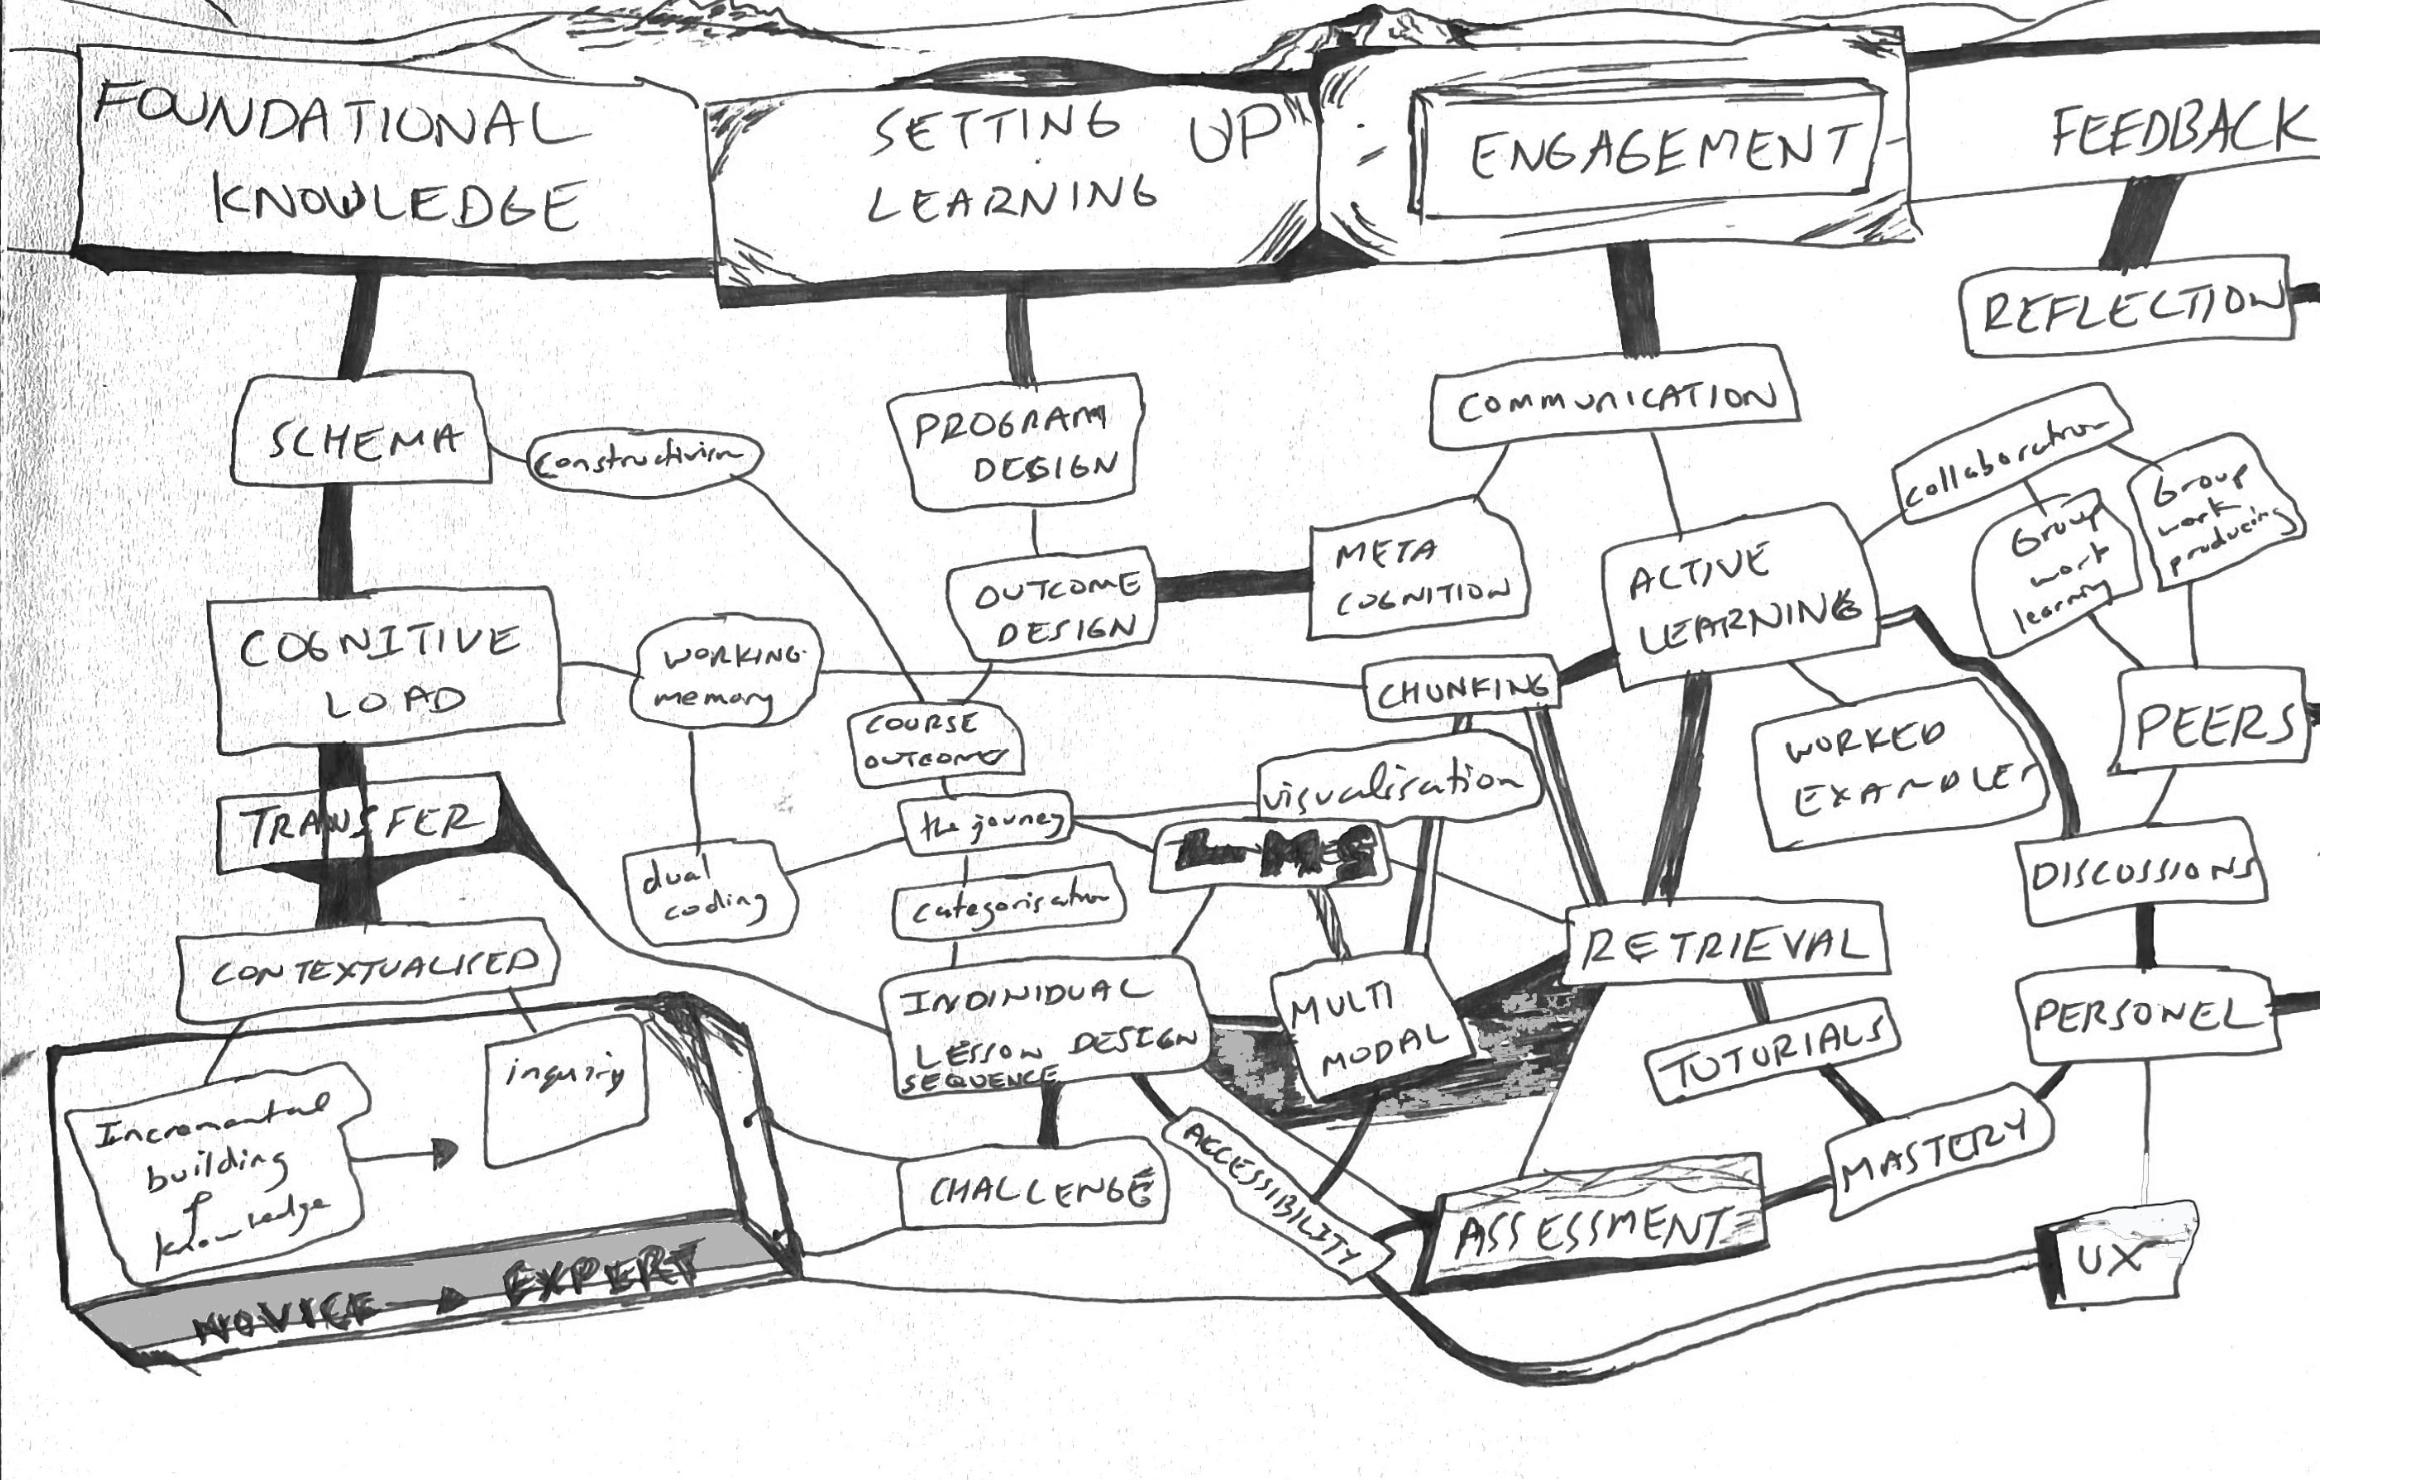 FOUNDATIONAL
KNOWLEDGE
SETTING UP
LEARNING
ENGAGEMENT
FEEDBACK
REFLECTION
SCHEMA
constructivism
PROGRAM
DESIGN
COMMUNICATION
collaboration
Group
work
producing
Group
work
learning
META
COGNITION
ACTIVE
LEARNING
OUTCOME
DESIGN
COGNITIVE
LOAD
WORKING
memory
CHUNKING
PEERS
COURSE
OUTCOMES
WORKED
EXAMPLES
visualisation
TRANSFER
the journey
LMS
dual
coding
categorisation
DISCUSSIONS
RETRIEVAL
CONTEXTUALISED
INDIVIDUAL
LESSON DESIGN
SEQUENCE
MULTI
MODAL
PERSONEL
TUTURIALS
inquiry
Incremental
building
of
knowledge
CHALLENGE
ACCESSIBILITY
MASTERY
ASSESSMENT
UX
NOVICE → EXPERT